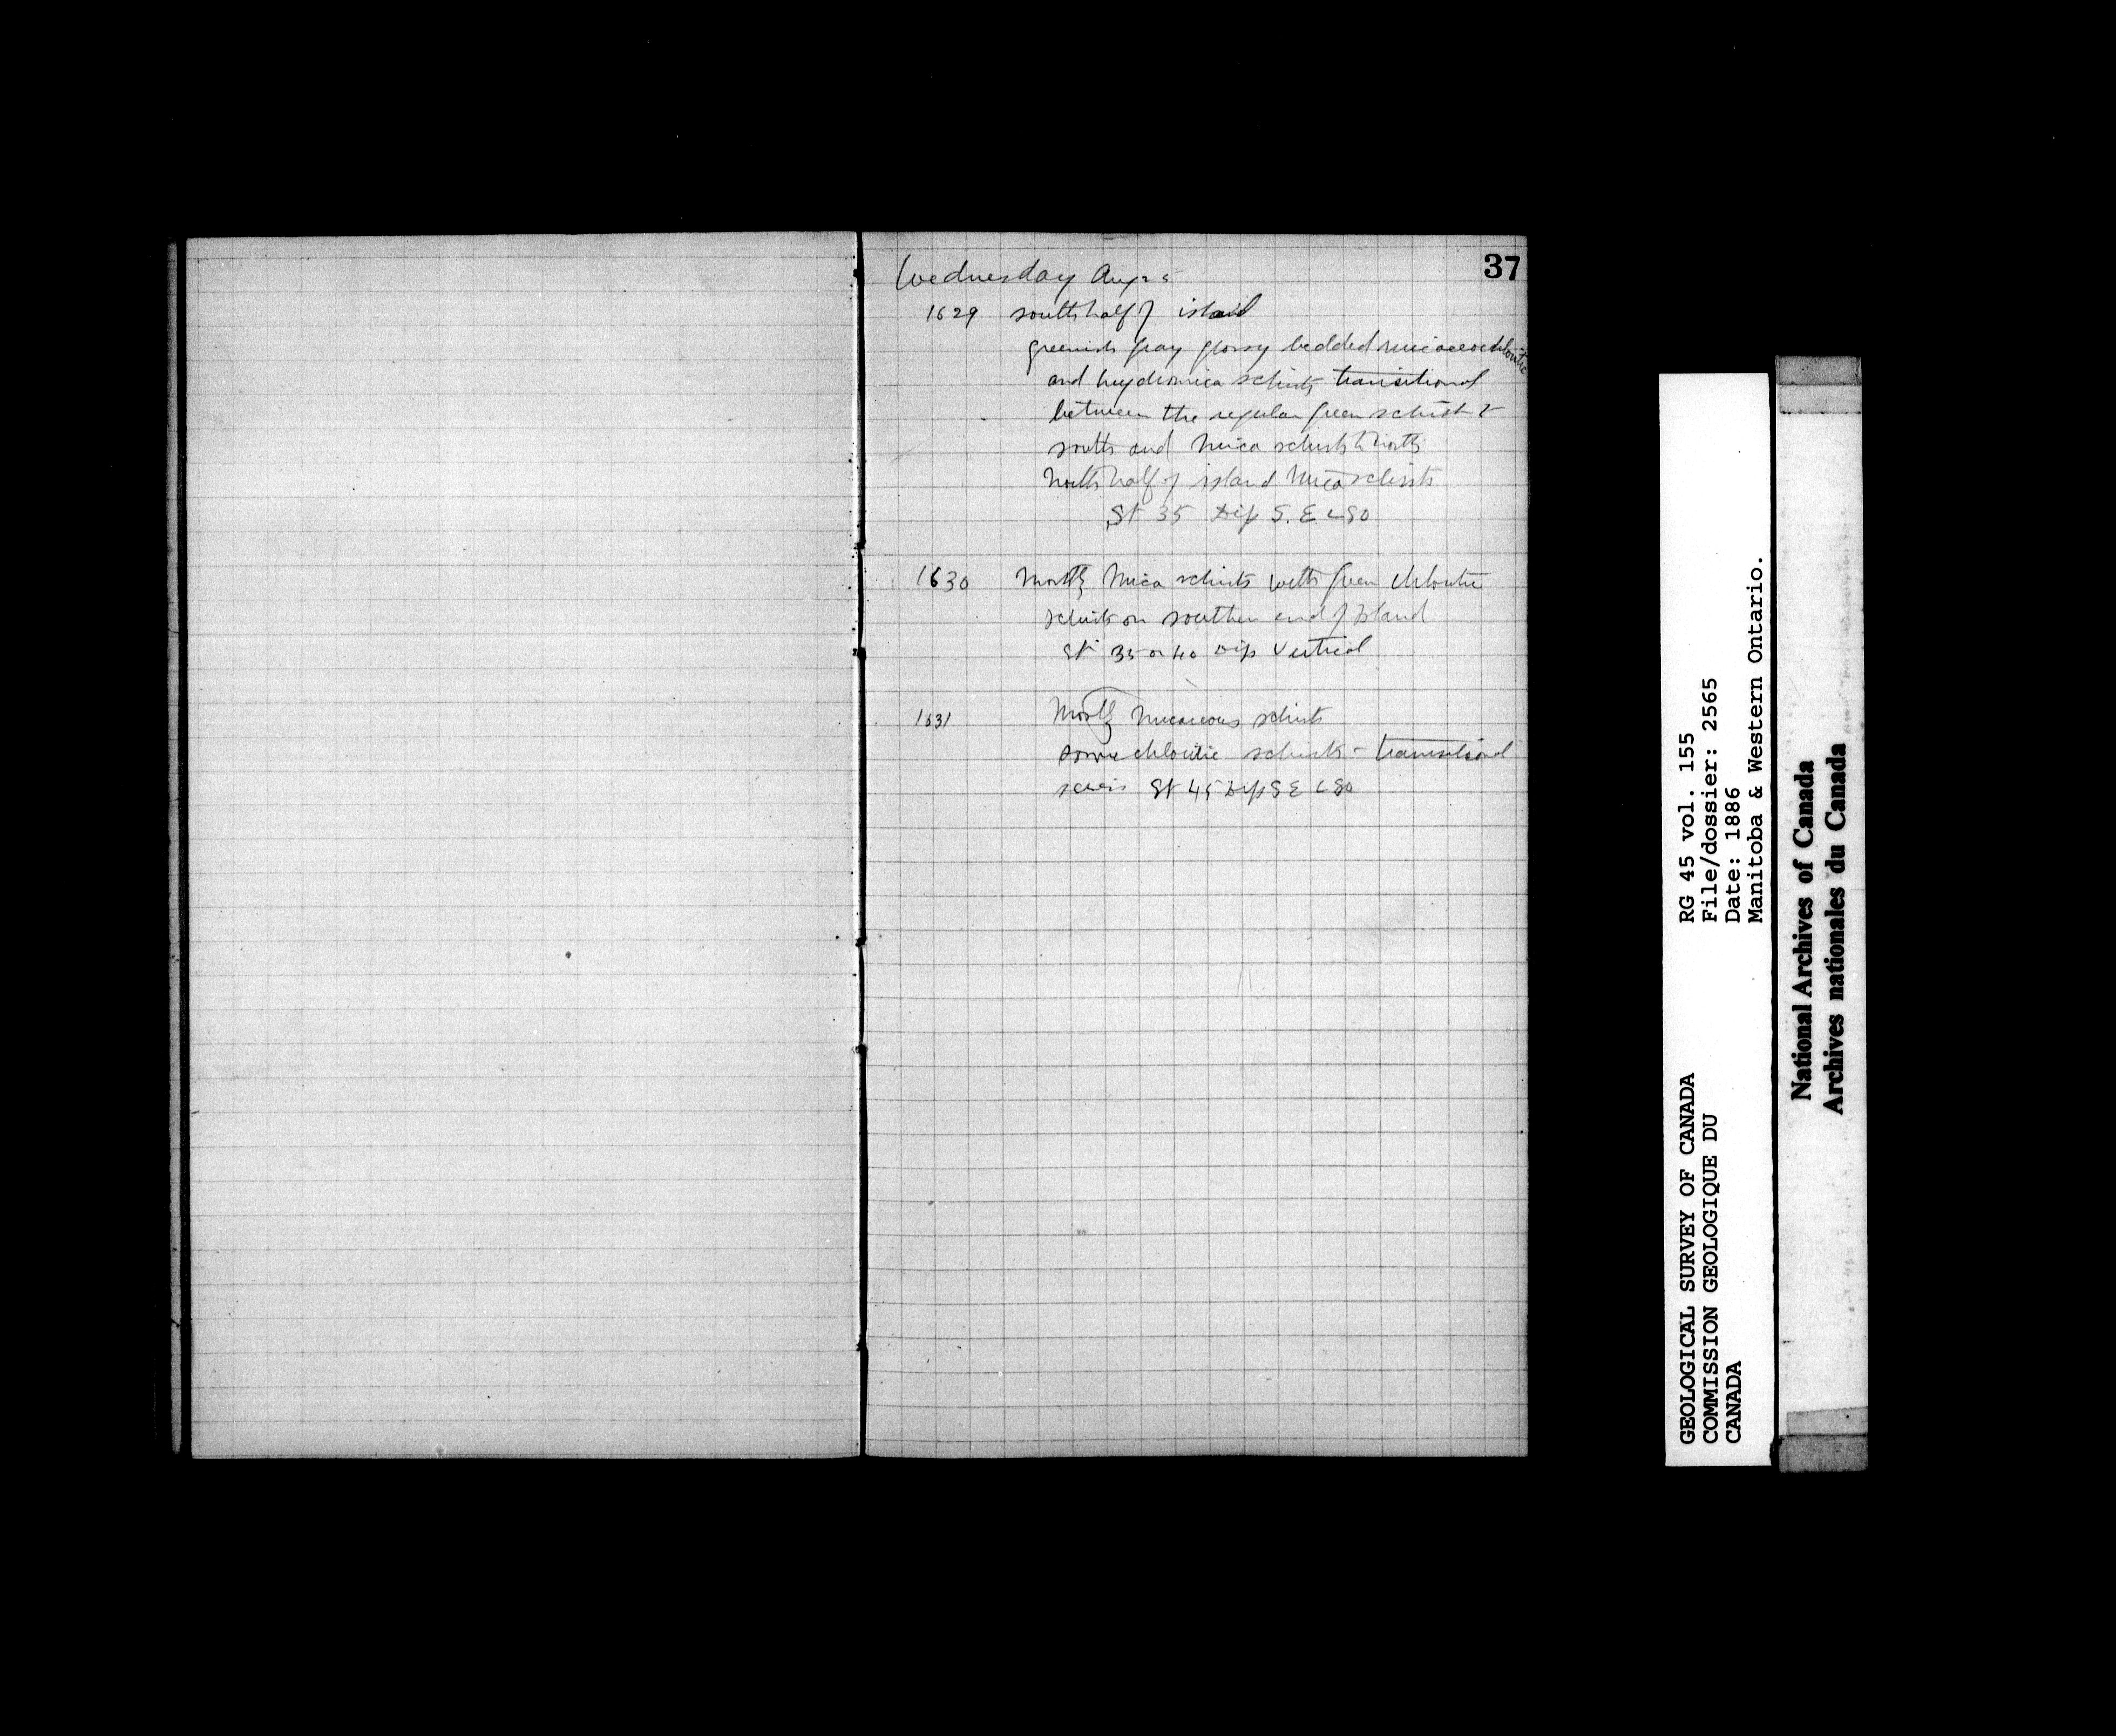 37
Wednesday Aug 25
1629 south half of island
greenish gray glossy bedded micaceo chloritic
and hydromica schists transitional
between the regular green schist to
south and mica schists to north
North half of island Mica schists
St 35 Dip S.E. ∠80
1630 Mostly Mica schists with green chloritic
schists on southern end of Island
St 35 or 40 Dip Vertical
1631 Mostly micaceous schists
some chloritic schists - transitional
series St 45 Dip SE ∠80
RG 45 vol. 155
File/dossier: 2565
Date: 1886
Manitoba & Western Ontario.
GEOLOGICAL SURVEY OF CANADA
COMMISSION GEOLOGIQUE DU
CANADA
National Archives of Canada
Archives nationales du Canada